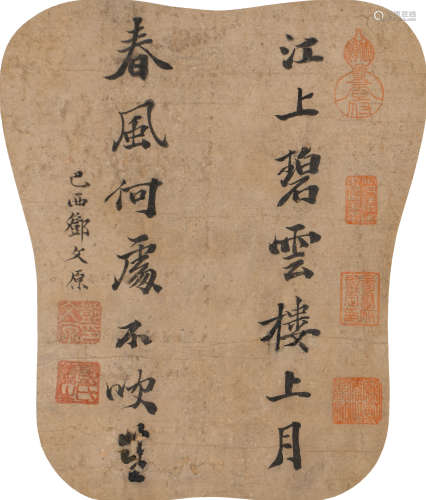 江上碧雲樓上月
春風何處不吹
己酉鄧文原